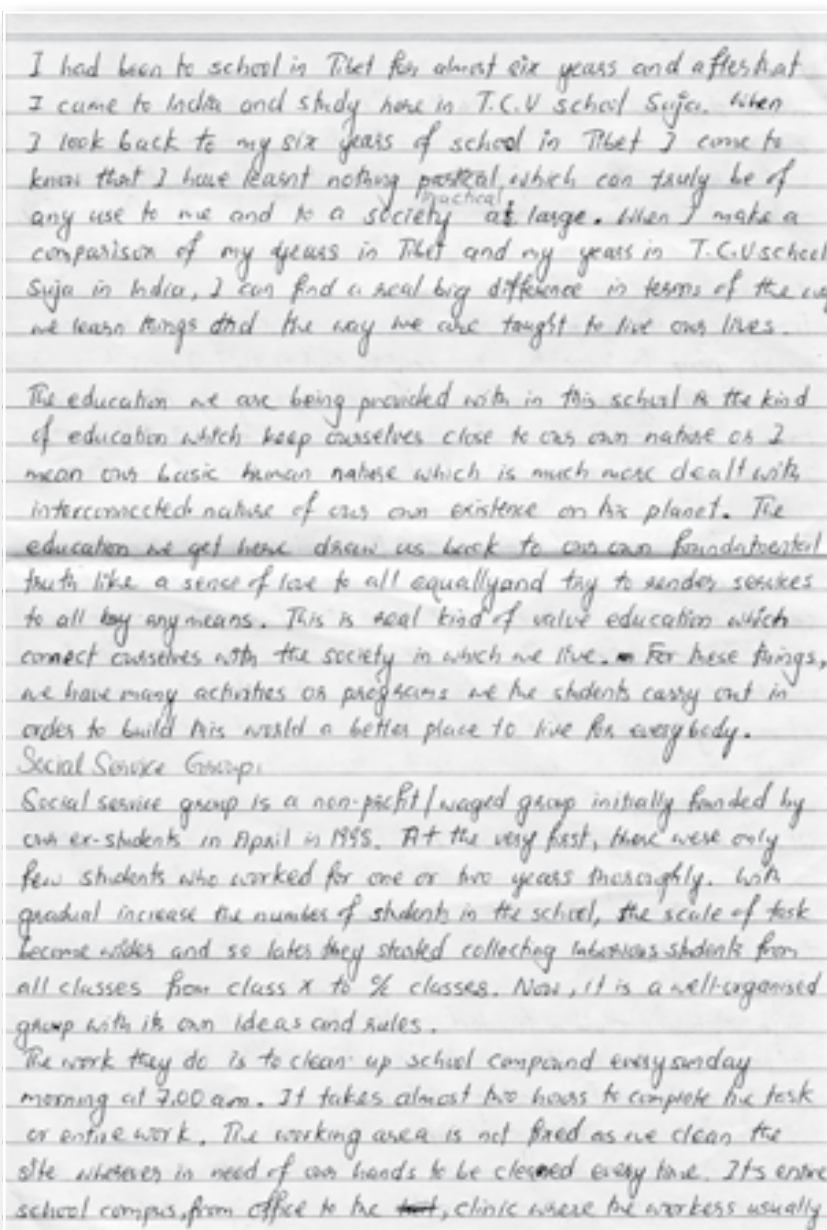 I had been to school in Tibet for almost six years and after that
I came to India and study here in T.C.V school Suja. When
I look back to my six years of school in Tibet I come to
know that I have learnt nothing practical, which can truly be of
any use to me and to a society at large. When I make a
comparison of my years in Tibet and my years in T.C.V school
Suja in India, I can find a real big difference in terms of the way
we learn things and the way we are taught to live our lives.
The education we are being provided with in this school is the kind
of education which keep ourselves close to our own nature or I
mean our basic human nature which is much more dealt with
interconnected nature of our own existence on his planet. The
education we get here draw us back to our own foundatmental
truth like a sence of love to all equally and try to render services
to all by any means. This is real kind of value education which
connect ourselves with the society in which we live. For these things,
we have many activities or programs we the students carry out in
order to build this world a better place to live for everybody.
Social Service Group:
Social service group is a non-profit/waged group initially founded by
our ex-students in April in 1995. At the very first, there were only
few students who worked for one or two years thoroughly. With
gradual increase the number of students in the school, the scale of task
become wider and so later they started collecting students from
all classes from class x to classes. Now, it is a well-organised
group with its own ideas and rules.
The work they do is to clean up school compound every sunday
morning at 7.00 am. It takes almost two hours to complete the task
or entire work. The working area is not fixed as we clean the
site wherever in need of our hands to be cleaned every time. Its entire
school campus, from office to the, clinic where the workers usually